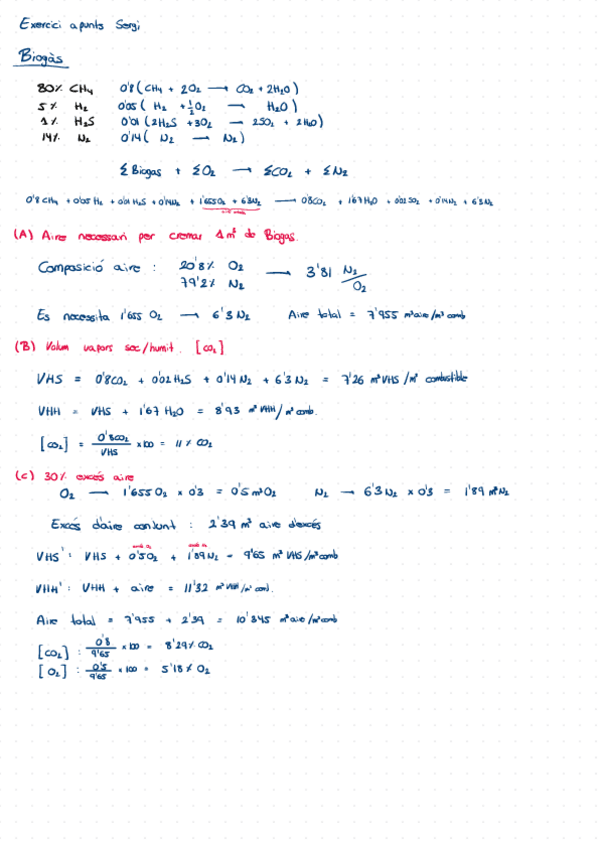 Exercici apunts Sergi
Biogàs
80% CH4 0'8 (CH4 + 2O2 → CO2 + 2H2O)
5% H2 0'05 ( H2 + 1/2 O2 → H2O)
1% H2S 0'01 (2H2S + 3O2 → 2SO2 + 2H2O)
14% N2 0'14 ( N2 → N2)
Σ Biogas + ΣO2 → ΣCO2 + ΣN2
0'8 CH4 + 0'05 H2 + 0'01 H2S + 0'14N2 + 1'655O2 + 6'3N2 → 0'8CO2 + 1'67H2O + 0'02SO2 + 0'14N2 + 6'3N2
(A) Aire necessari per cremar 1m³ de Biogas.
Composició aire : 20'8% O2 → 3'81 N2/O2
79'2% N2
Es necessita 1'655 O2 → 6'3 N2 Aire total = 7'955 m³aire/m³comb
(B) Volum vapors sec/humit. [CO2]
VHS = 0'8CO2 + 0'02 H2S + 0'14 N2 + 6'3 N2 = 7'26 m³VHS/m³ combustible
VHH = VHS + 1'67 H2O = 8'93 m³ VHH/m³comb.
[CO2] = 0'8CO2/VHS ×100 = 11% CO2
(C) 30% excés aire
O2 → 1'655O2 × 0'3 = 0'5 m³O2 N2 → 6'3 N2 × 0'3 = 1'89 m³N2
Excés d'aire conjunt : 2'39 m³ aire d'excés
VHS' : VHS + 0'5O2 + 1'89N2 = 9'65 m³ VHS/m³comb
VHH' : VHH + aire = 11'32 m³ VHH/m³ comb.
Aire total = 7'955 + 2'39 = 10'345 m³aire/m³comb
[CO2] : 0'8/9'65 ×100 = 8'29% CO2
[O2] : 0'5/9'65 ×100 = 5'18% O2